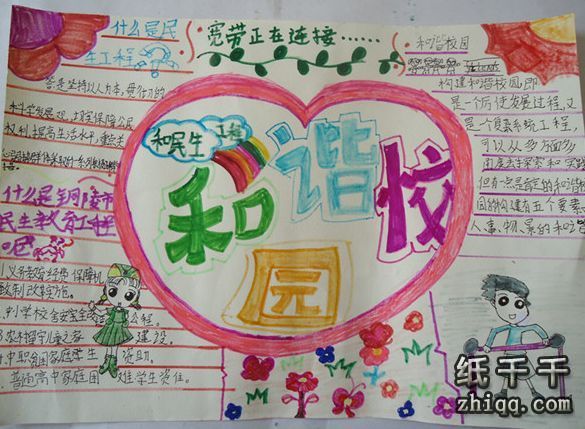 什么是民
生工程
答是坚持以人为本,
权利,提高生活水平,
什么是铜陵市
民生教育工程
呢
1.义务教育经费保障机
制改革实施。
2.中小学校舍安全工程。
3.农村留守儿童之家建设。
4.中职贫困家庭学生资助。
普通高中家庭困难学生资住。
宽带正在连接……
和民生工程
和谐校
园
和谐校园
构建和谐校园即
是一个历使发展过程,又
是一个复素系统工程,
可以从多方面多
但有一点是肯定的和谐校
园的构建有五个要素
人、事、物、景的和谐
纸千千
zhiqq.com